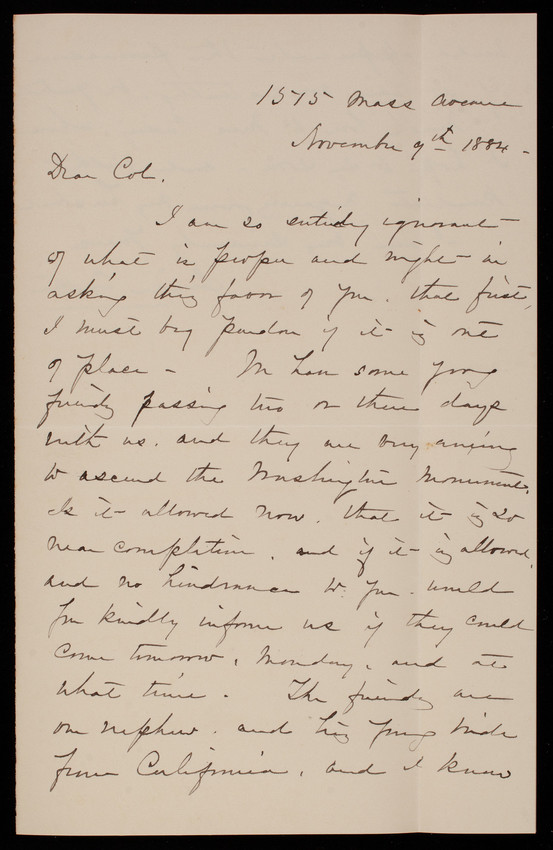 1515 Mass Avenue
November 9th 1884 -
Dear Col.
I am so entirely ignorant
of what is proper and right in
asking this favor of you. that first,
I must beg pardon if it is out
of place - We have some young
friends passing two or three days
with us. and they are very anxious
to ascend the Washington Monument.
Is it allowed now. that it is so
near completion. and if it is allowed,
and no hindrance to you. would
you kindly inform us if they could
come tomorrow, Monday, and at
what time. The friends are
our nephew. and his young bride
from California, and I know